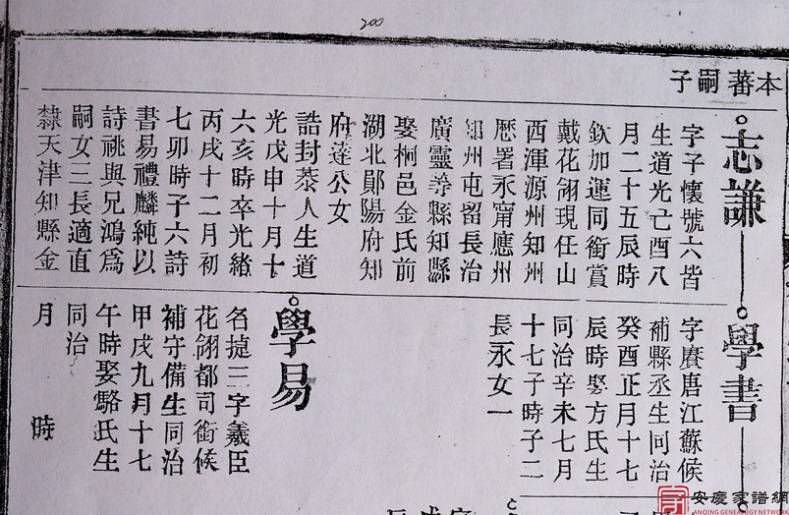 200
本蕃嗣子
志謙
字子懷號六皆
生道光乙酉八
月二十五辰時
欽加運同銜賞
戴花翎現任山
西渾源州知州
歷署永甯應州
州屯留長治
廣靈等縣知縣
娶桐邑金氏前
湖北鄖陽府知
府達公女
誥封恭人生道
光戊申十月十
六亥時卒光緒
丙戌十二月初
七卯時子六詩
書易禮麟純以
詩祧與兄鴻爲
嗣女三長適直
隸天津知縣金
學書
字賡唐江蘇候
補縣丞生同治
癸酉正月十七
辰時娶方氏生
同治辛未七月
十七子時子二
長永女一
學易
名捷三字羲臣
花翎都司銜候
補守備生同治
甲戌九月十七
午時娶駱氏生
同治
月 時
安慶家譜網
ANQING GENEALOGY NETWORK